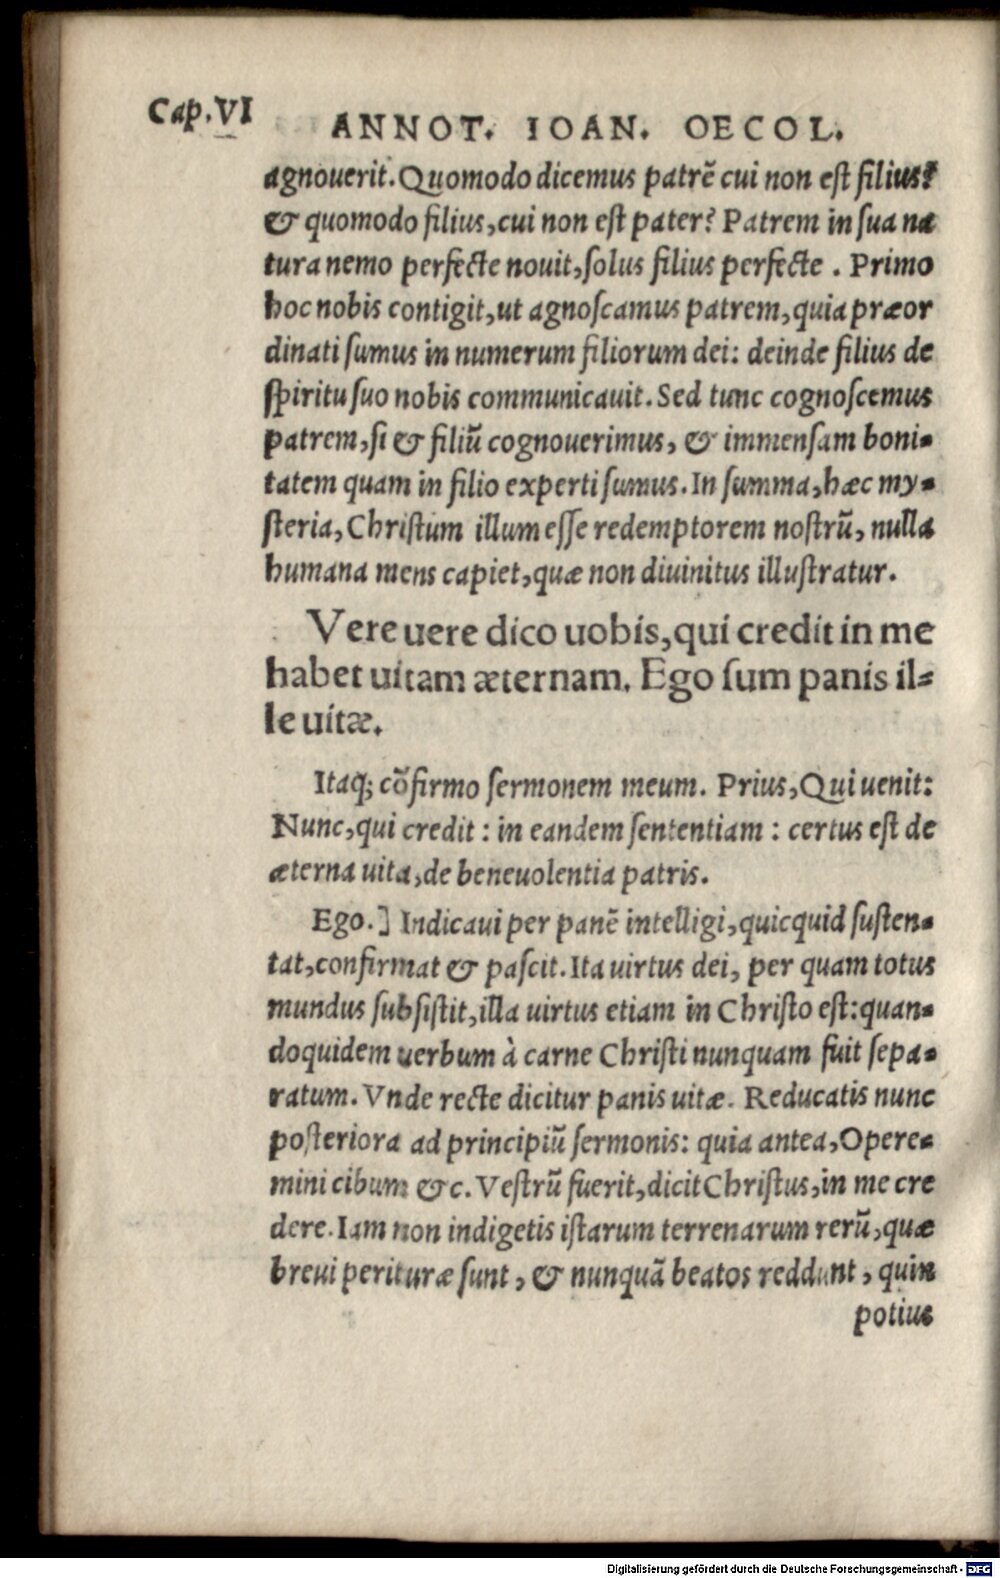 Cap.VI
ANNOT. IOAN. OECOL.
agnouerit. Quomodo dicemus patrē cui non est filius?
& quomodo filius, cui non est pater? Patrem in sua na
tura nemo perfecte nouit, solus filius perfecte . Primo
hoc nobis contigit, ut agnoscamus patrem, quia præor
dinati sumus in numerum filiorum dei: deinde filius de
spiritu suo nobis communicauit. Sed tunc cognoscemus
patrem, si & filiū cognouerimus, & immensam boni-
tatem quam in filio experti sumus. In summa, hæc my-
steria, Christum illum esse redemptorem nostrū, nulla
humana mens capiet, quæ non diuinitus illustratur.
Vere uere dico uobis, qui credit in me
habet uitam æternam. Ego sum panis il-
le uitæ.
Itaq; cōfirmo sermonem meum. Prius, Qui uenit:
Nunc, qui credit : in eandem sententiam : certus est de
æterna uita, de beneuolentia patris.
Ego.] Indicaui per panē intelligi, quicquid susten-
tat, confirmat & pascit. Ita uirtus dei, per quam totus
mundus subsistit, illa uirtus etiam in Christo est: quan-
doquidem uerbum à carne Christi nunquam fuit sepa-
ratum. Vnde recte dicitur panis uitæ. Reducatis nunc
posteriora ad principiū sermonis: quia antea, Opere-
mini cibum &c. Vestrū fuerit, dicit Christus, in me cre
dere. Iam non indigetis istarum terrenarum rerū, quæ
breui perituræ sunt, & nunquā beatos reddunt, quin
potius
Digitalisierung gefördert durch die Deutsche Forschungsgemeinschaft - DFG